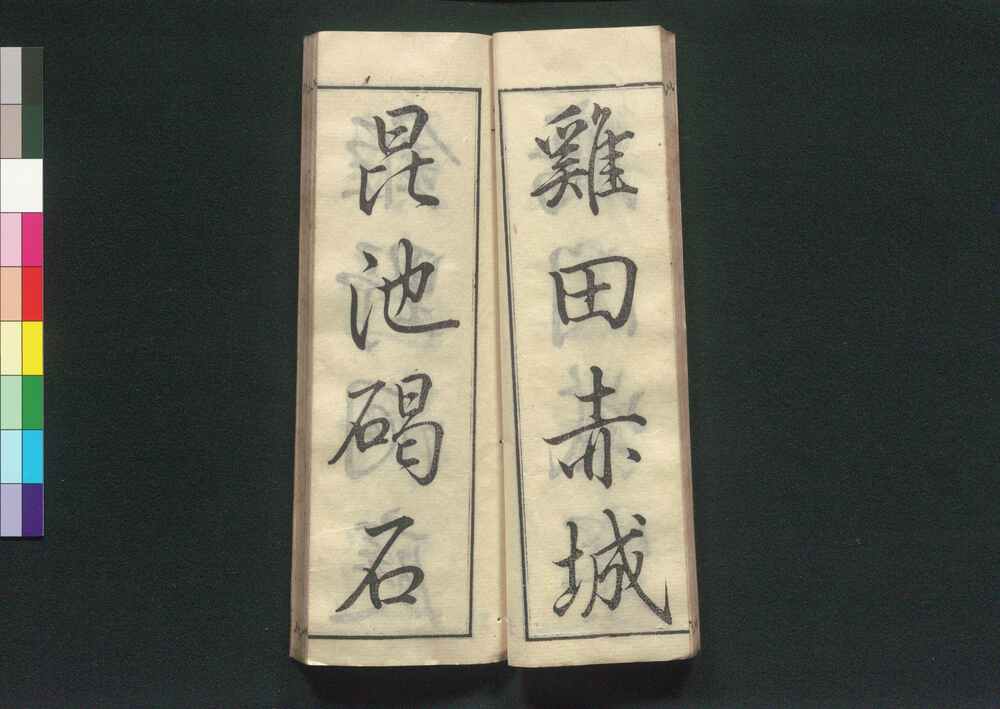 雞田赤城
昆池碣石